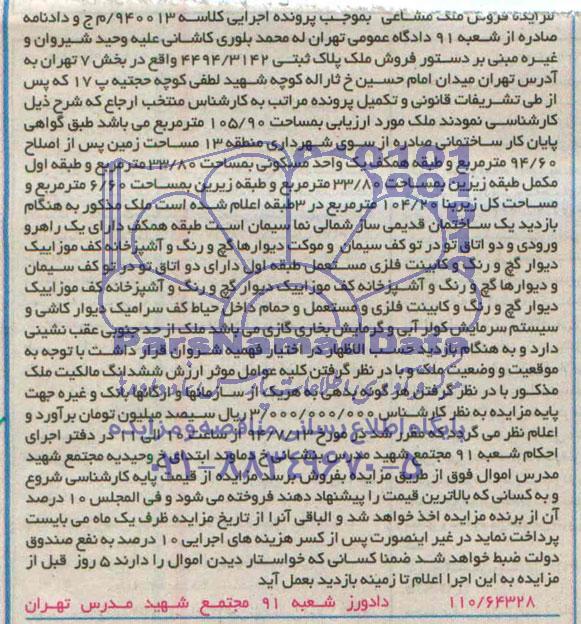 مزایده فروش ملک مشاعی بموجب پرونده اجرایی کلاسه ۹۴۰۰۱۳/م ج و دادنامه
صادره از شعبه ۹۱ دادگاه عمومی تهران له محمد بلوری کاشانی علیه وحید شیروان و
غیره مبنی بر دستور فروش ملک پلاک ثبتی ۴۴۹۴/۳۱۴۲ واقع در بخش ۷ تهران به
آدرس تهران میدان امام حسین خ ثاراله کوچه شهید لطفی کوچه حجتیه پ ۱۷ که پس
از طی تشریفات قانونی و تکمیل پرونده مراتب به کارشناس منتخب ارجاع که شرح ذیل
کارشناسی نمودند ملک مورد ارزیابی بمساحت ۱۰۵/۹۰ مترمربع می باشد طبق گواهی
پایان کار ساختمانی صادره از سوی شهرداری منطقه ۱۳ مساحت زمین پس از اصلاح
۹۴/۶۰ مترمربع و طبقه همکف یک واحد مسکونی بمساحت ۳۳/۸۰ مترمربع و طبقه اول
مکمل طبقه زیرین بمساحت ۳۳/۸۰ مترمربع و طبقه زیرین بمساحت ۶/۶۰ مترمربع و
مساحت کل زیربنا ۱۰۴/۲۰ مترمربع در ۳طبقه اعلام شده است ملک مذکور به هنگام
بازدید یک ساختمان قدیمی ساز شمالی نما سیمان است طبقه همکف دارای یک راهرو
ورودی و دو اتاق تو در تو کف سیمان و موکت دیوارها گچ و رنگ و آشپزخانه کف موزاییک
دیوار گچ و رنگ و کابینت فلزی مستعمل طبقه اول دارای دو اتاق تو در تو کف سیمان
و دیوارها گچ و رنگ و آشپزخانه کف موزاییک دیوار گچ و رنگ و آشپزخانه کف موزاییک
دیوار گچ و رنگ و کابینت فلزی و مستعمل و حمام داخل حیاط کف سرامیک دیوار کاشی و
سیستم سرمایش کولر آبی و گرمایش بخاری گازی می باشد ملک از حد جنوبی عقب نشینی
دارد و به هنگام بازدید حسب الاظهار در اختیار فهمیه شروان قرار داشت با توجه به
موقعیت و وضعیت ملک و با در نظر گرفتن کلیه عوامل موثر ارزش ششدانگ مالکیت ملک
مذکور با در نظر گرفتن هر گونه بدهی به هر یک از سازمانها و ارگانها بانک و غیره جهت
پایه مزایده به نظر کارشناس ۳/۰۰۰/۰۰۰/۰۰۰ ریال سیصد میلیون تومان برآورد و
اعلام نظر می گردد که مقرر شد در مورخ ۹۴/۷/۱۲ از ساعت ۱۰ الی ۱۱ در دفتر اجرای
احکام شعبه ۹۱ مجتمع شهید مدرس بنشانی خ دماوند ابتدای خ وحیدیه مجتمع شهید
مدرس اموال فوق از طریق مزایده بفروش برسد مزایده از قیمت پایه کارشناسی شروع
و به کسانی که بالاترین قیمت را پیشنهاد دهند فروخته می شود و فی المجلس ۱۰ درصد
آن از برنده مزایده اخذ خواهد شد و الباقی آنرا از تاریخ مزایده ظرف یک ماه می بایست
پرداخت نماید در غیر اینصورت پس از کسر هزینه های اجرایی ۱۰ درصد به نفع صندوق
دولت ضبط خواهد شد ضمنا کسانی که خواستار دیدن اموال را دارند ۵ روز قبل از
مزایده به این اجرا اعلام تا زمینه بازدید بعمل آید
۱۱۰/۶۴۳۲۸ دادورز شعبه ۹۱ مجتمع شهید مدرس تهران
ParsNamadData
پایگاه اطلاع رسانی مناقصه و مزایده
۰۲۱-۸۸۳۴۹۶۷۰-۵